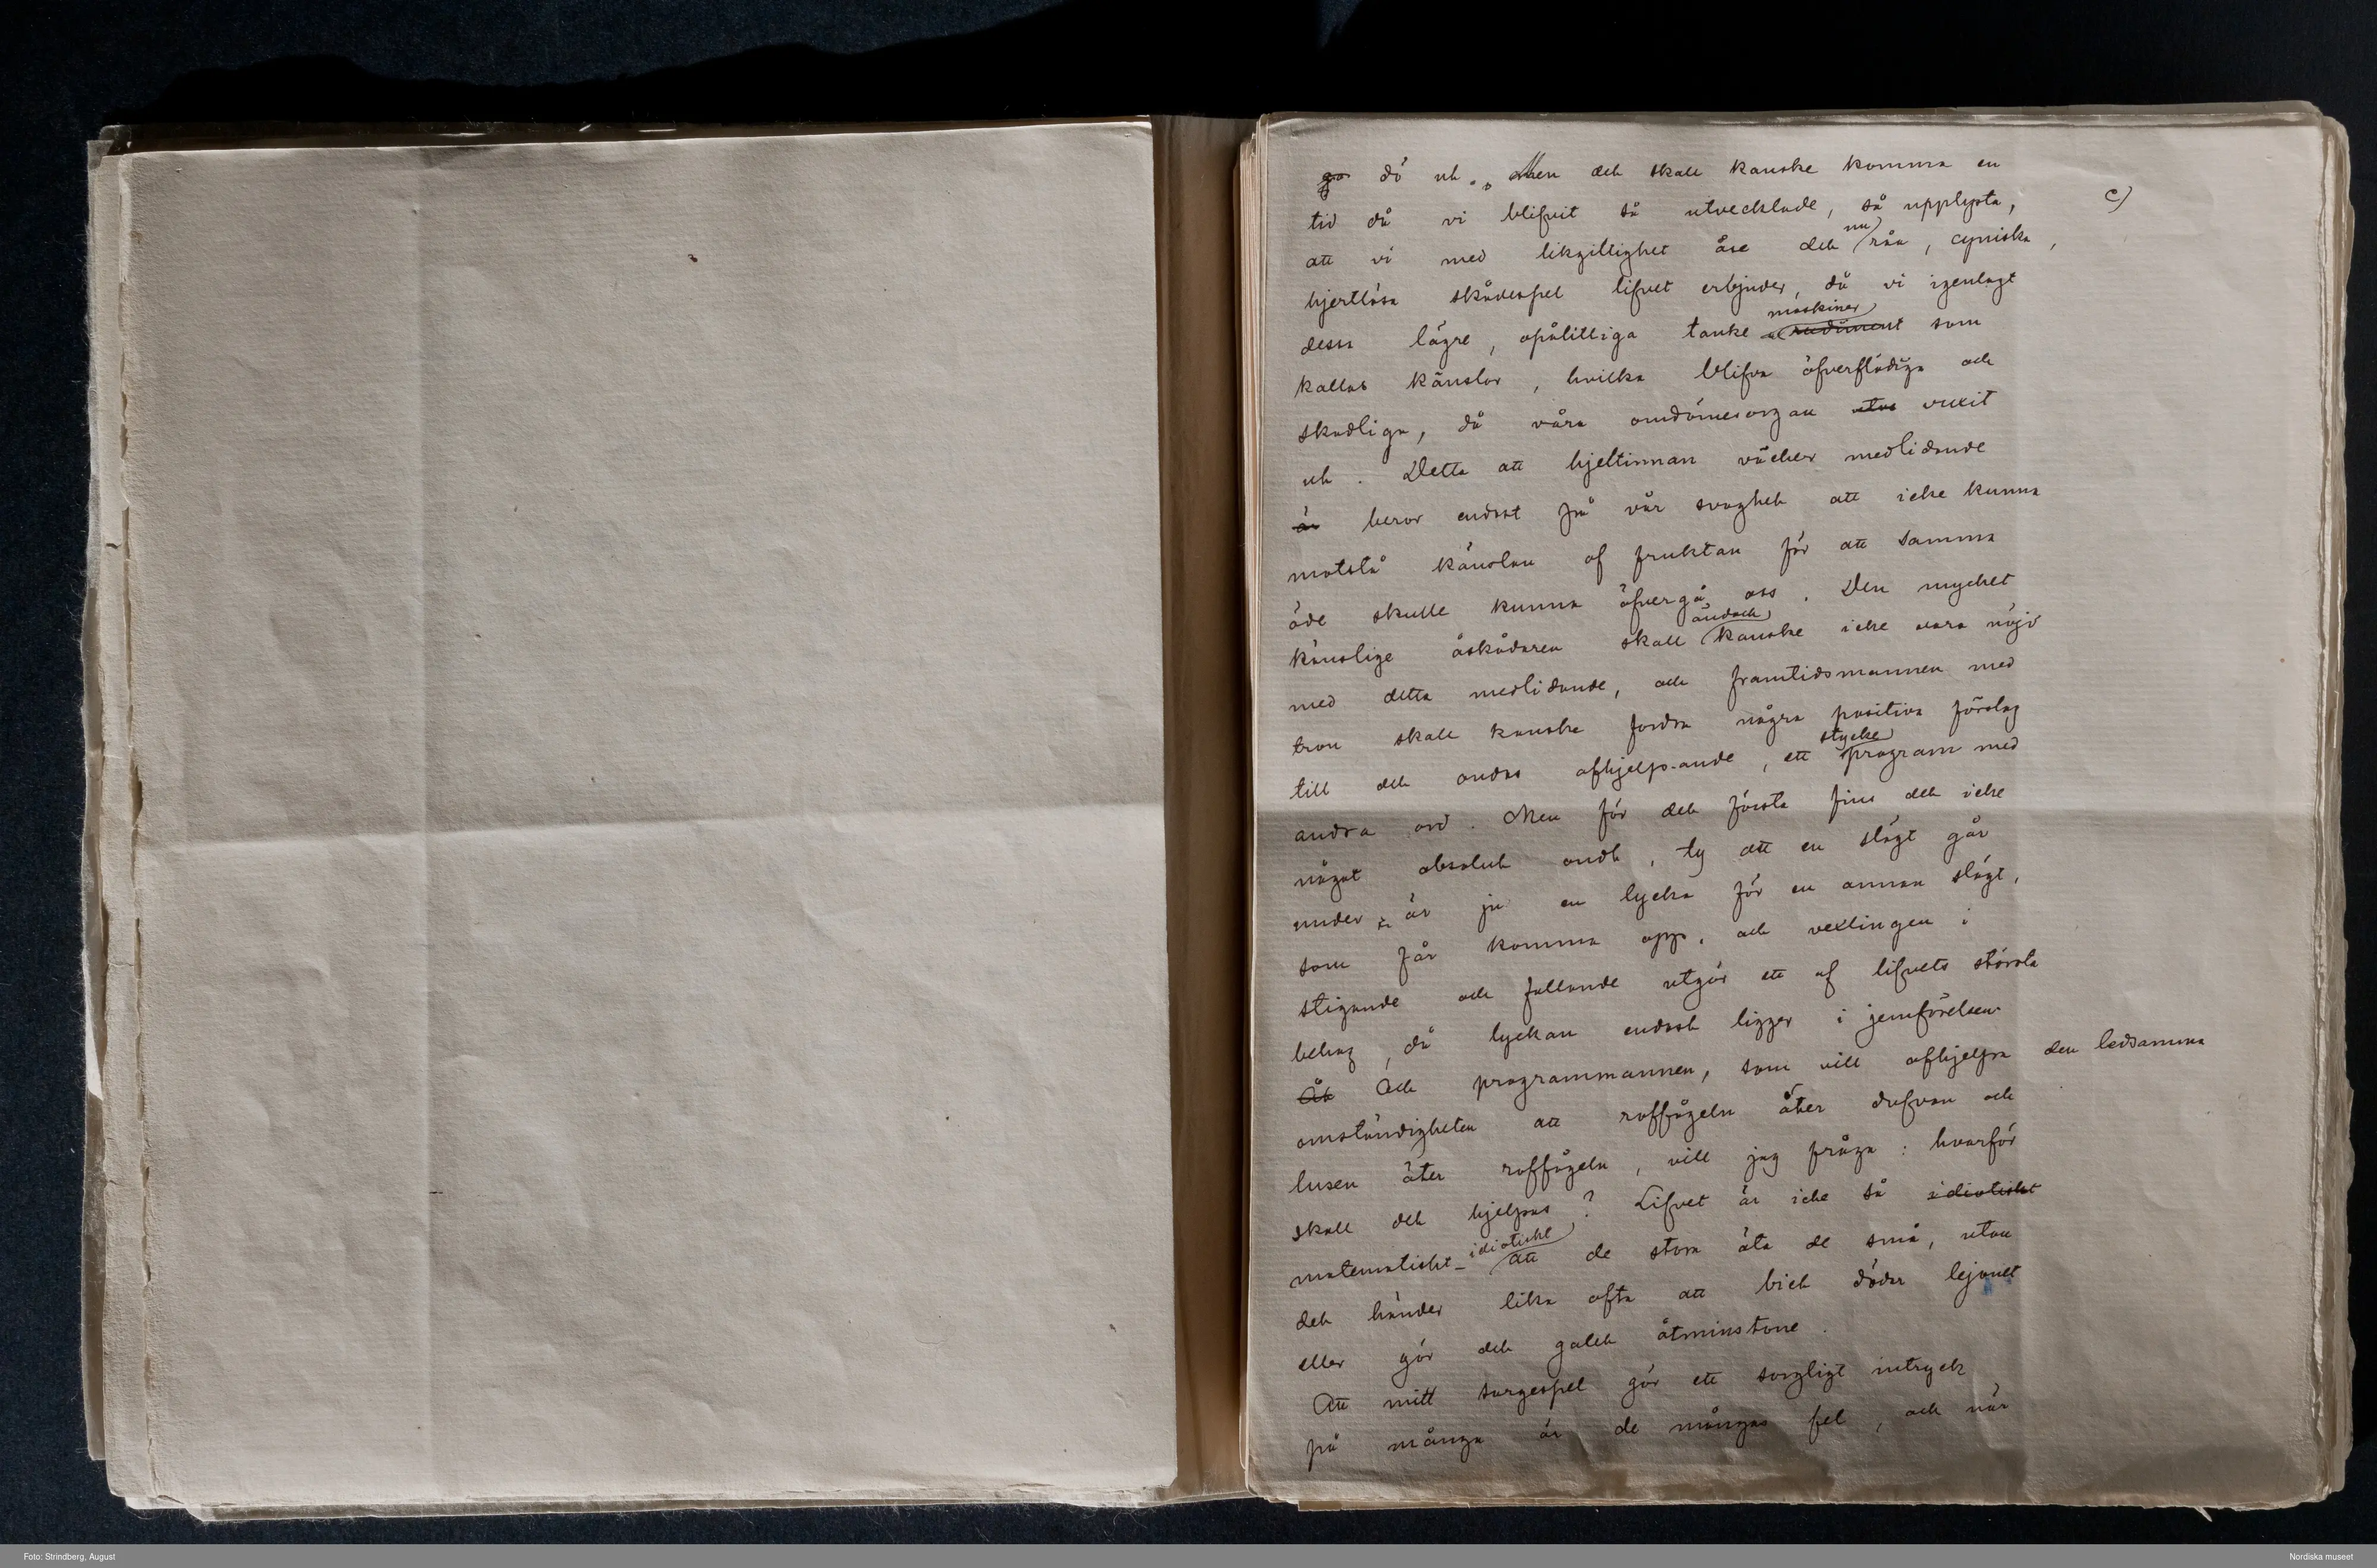 c)
ga dö ut. Men det skall kanske komma en
tid då vi blifvit så utvecklade, så upplysta,
nu
att vi med likgiltighet åse det råa, cyniska,
hjertlösa skådespel lifvet erbjuder, då vi igenlagt
maskiner
dessa lägre, opålitliga tanke-rudiment som
kallas känslor, hvilka blifva öfverflödiga och
skadliga, då våra omdömesorgan utva vuxit
ut. Detta att hjeltinnan väcker medlidande
är beror endast på vår svaghet att icke kunna
motstå känslan af fruktan för att samma
öde skulle kunna öfvergå oss. Den mycket
ändock
känslige åskådaren skall kanske icke vara nöjd
med detta medlidande, och framtidsmannen med
tron skall kanske fordra några positiva förslag
stycke
till det ondas afhjelpande, ett program med
andra ord. Men för det första fins det icke
något absolut ondt, ty att en slägt går
under är ju en lycka för en annan slägt,
som får komma opp, och vexlingen i
stigande och fallande utgör ett af lifvets största
behag, då lyckan endast ligger i jemförelsen.
Åt Och programmannen, som vill afhjelpa den ledsamma
omständigheten att roffågeln äter dufvan och
lusen äter roffågeln, vill jag fråga: hvarför
skall det hjelpas? Lifvet är icke så idiotiskt
idiotiskt
matematiskt- att de stora äta de små, utan
det händer lika ofta att biet dödar lejonet
eller gör det galet åtminstone.
Att mitt sorgespel gör ett sorgligt intryck
på många är de mångas fel, och när
Foto: Strindberg, August
Nordiska museet